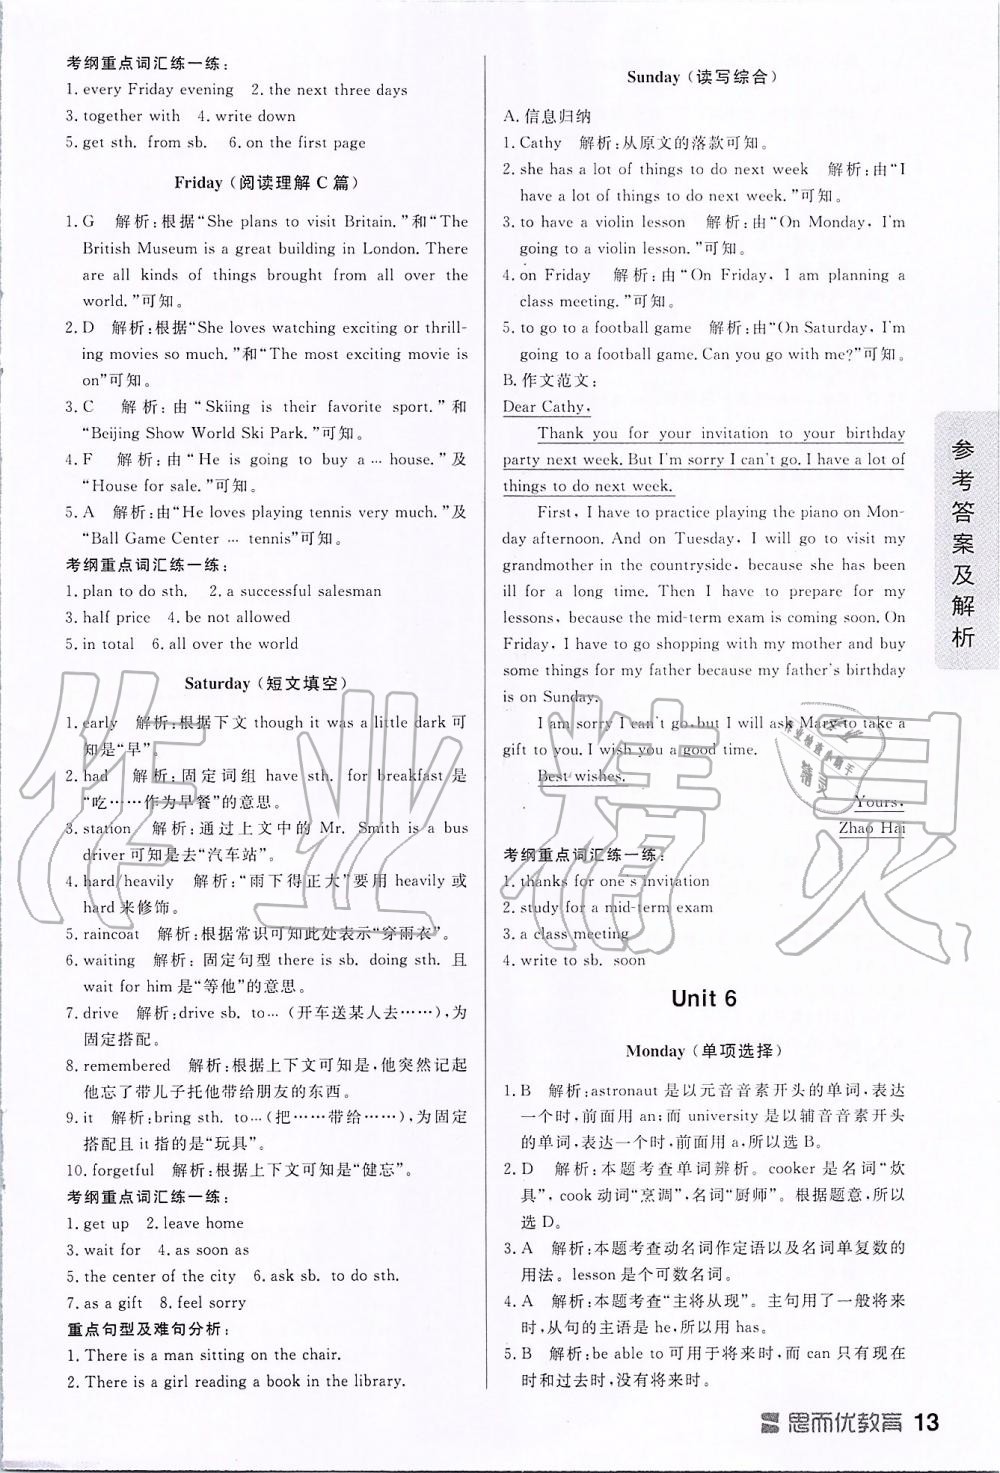 考纲重点词汇练一练：
1. every Friday evening 2. the next three days
3. together with 4. write down
5. get sth. from sb. 6. on the first page
Friday（阅读理解 C 篇）
1. G 解析：根据“She plans to visit Britain.”和“The
British Museum is a great building in London. There
are all kinds of things brought from all over the
world.”可知。
2. D 解析：根据“She loves watching exciting or thrill-
ing movies so much.”和“The most exciting movie is
on”可知。
3. C 解析：由“Skiing is their favorite sport.”和
“Beijing Show World Ski Park.”可知。
4. F 解析：由“He is going to buy a … house.”及
“House for sale.”可知。
5. A 解析：由“He loves playing tennis very much.”及
“Ball Game Center … tennis”可知。
考纲重点词汇练一练：
1. plan to do sth. 2. a successful salesman
3. half price 4. be not allowed
5. in total 6. all over the world
Saturday（短文填空）
1. early 解析：根据下文 though it was a little dark 可
知是“早”。
2. had 解析：固定词组 have sth. for breakfast 是
“吃……作为早餐”的意思。
3. station 解析：通过上文中的 Mr. Smith is a bus
driver 可知是去“汽车站”。
4. hard/heavily 解析：“雨下得正大”要用 heavily 或
hard 来修饰。
5. raincoat 解析：根据常识可知此处表示“穿雨衣”。
6. waiting 解析：固定句型 there is sb. doing sth. 且
wait for him 是“等他”的意思。
7. drive 解析：drive sb. to…（开车送某人去……），为
固定搭配。
8. remembered 解析：根据上下文可知是，他突然记起
他忘了带儿子托他带给朋友的东西。
9. it 解析：bring sth. to…（把……带给……），为固定
搭配且 it 指的是“玩具”。
10. forgetful 解析：根据上下文可知是“健忘”。
考纲重点词汇练一练：
1. get up 2. leave home
3. wait for 4. as soon as
5. the center of the city 6. ask sb. to do sth.
7. as a gift 8. feel sorry
重点句型及难句分析：
1. There is a man sitting on the chair.
2. There is a girl reading a book in the library.
Sunday（读写综合）
A. 信息归纳
1. Cathy 解析：从原文的落款可知。
2. she has a lot of things to do next week 解析：由“I
have a lot of things to do next week.”可知。
3. to have a violin lesson 解析：由“On Monday, I'm
going to a violin lesson.”可知。
4. on Friday 解析：由“On Friday, I am planning a
class meeting.”可知。
5. to go to a football game 解析：由“On Saturday, I'm
going to a football game. Can you go with me?”可知。
B. 作文范文：
Dear Cathy,
Thank you for your invitation to your birthday
party next week. But I'm sorry I can't go. I have a lot of
things to do next week.
First, I have to practice playing the piano on Mon-
day afternoon. And on Tuesday, I will go to visit my
grandmother in the countryside, because she has been
ill for a long time. Then I have to prepare for my
lessons, because the mid-term exam is coming soon. On
Friday, I have to go shopping with my mother and buy
some things for my father because my father's birthday
is on Sunday.
I am sorry I can't go, but I will ask Mary to take a
gift to you. I wish you a good time.
Best wishes.
Yours,
Zhao Hai
考纲重点词汇练一练：
1. thanks for one's invitation
2. study for a mid-term exam
3. a class meeting
4. write to sb. soon
Unit 6
Monday（单项选择）
1. B 解析：astronaut 是以元音音素开头的单词，表达
一个时，前面用 an；而 university 是以辅音音素开头
的单词，表达一个时，前面用 a，所以选 B。
2. D 解析：本题考查单词辨析。cooker 是名词“炊
具”，cook 动词“烹调”，名词“厨师”。根据题意，所以
选 D。
3. A 解析：本题考查动名词作定语以及名词单复数的
用法。lesson 是个可数名词。
4. A 解析：本题考查“主将从现”。主句用了一般将来
时，从句的主语是 he，所以用 has。
5. B 解析：be able to 可用于将来时，而 can 只有现在
时和过去时，没有将来时。
参考答案及解析
思而优教育 13
作业精灵